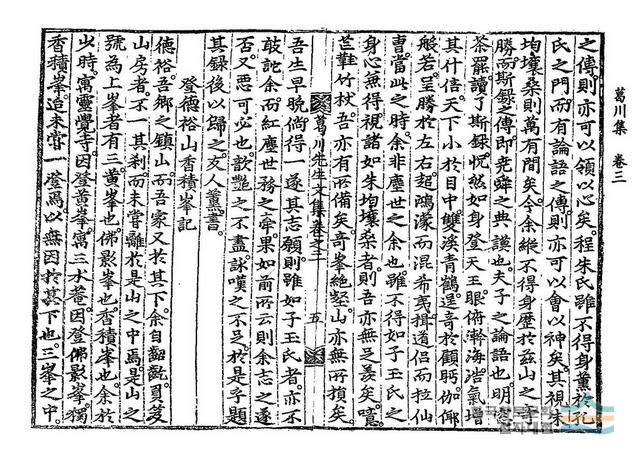 葛川集 卷三
之傳則亦可以領以心矣程朱氏雖不得身薰於孔
氏之門而有論語之傳則亦可以會以神矣其視朱
均壤桑則萬有間矣今余縱不得身歷於玆山之奇
勝而斯錄之傳即堯舜之典謨也夫子之論語也明窓
茶罷讀了斯錄怳然如身登天王眼俯瀚海浩氣增
其什倍天下小於目中雙溪青鶴逞奇於顧眄伽倻
般若呈勝於左右超鴻濛而混希夷揖道侶而拉仙
曺當此之時余非塵世之余也雖不得如子王氏之
身心兼得視諸如朱均壤桑者則吾亦無之羨矣噫
芒鞋竹杖吾亦有所備矣奇峯絶壑山亦無所損矣
葛川先生文集卷之三 五
吾生早晩倘得一遂其志願則雖如子王氏者亦不
敢詑余而紅塵世務之牽果如前所云則余志之遂
否又惡可必也歆艶之不盡詠嘆之不足於是乎題
其錄後以歸之友人叢書
登德裕山香積峯記
德裕吾鄉之鎮山而吾家又於其下余自齠齔負笈
山房者不一其刹而未嘗離於是山之中焉是山之
號爲上峯者有三黃峯也佛影峯也香積峯也余於
少時寓靈覺寺因登黃峯寓三水菴因登佛影峯獨
香積峯迨未嘗一登焉以無因於其下也三峯之中